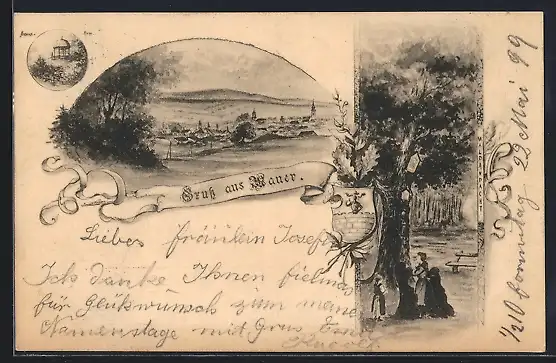 Gruß aus Mauer.
Liebes fräulein Josefi
Ich danke Ihnen fielmas
für Glükwünsch zum meine
Namenstage mit Grus
1/210 Sonntag 28 Mai 99